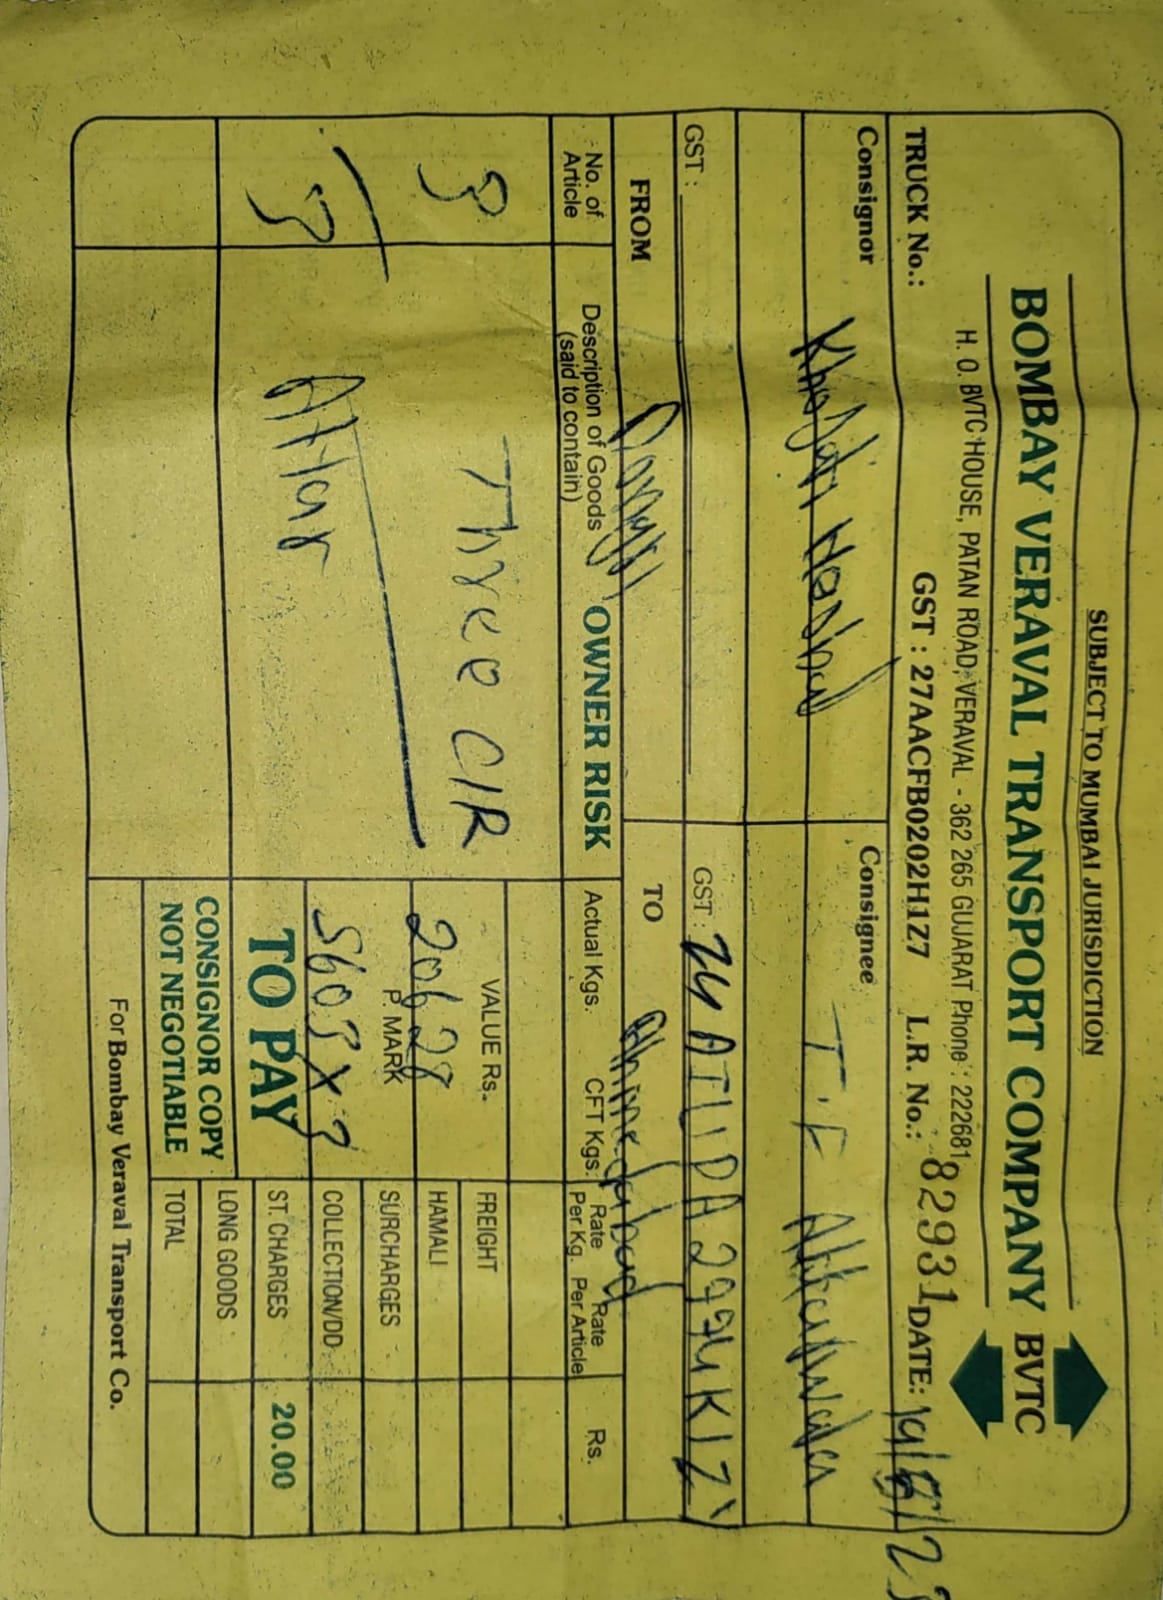 SUBJECT TO MUMBAI JURISDICTION
BOMBAY VERAVAL TRANSPORT COMPANY BVTC
H. O. BVTC HOUSE, PATAN ROAD, VERAVAL - 362 265 GUJARAT Phone : 222681
TRUCK No.: GST : 27AACFB0202H1Z7 L.R. No.: 82931 DATE:
Consignor Consignee
T.F
GST : GST :
FROM TO Ahmedabad
No. of Article Description of Goods (said to contain) OWNER RISK Actual Kgs. CFT Kgs. Rate Per Kg. Rate Per Article Rs.
3 Three CIR VALUE Rs. FREIGHT
20628 HAMALI
P. MARK SURCHARGES
3 Attar 5603 x 3 COLLECTION/DD
TO PAY ST. CHARGES 20.00
CONSIGNOR COPY LONG GOODS
NOT NEGOTIABLE TOTAL
For Bombay Veraval Transport Co.